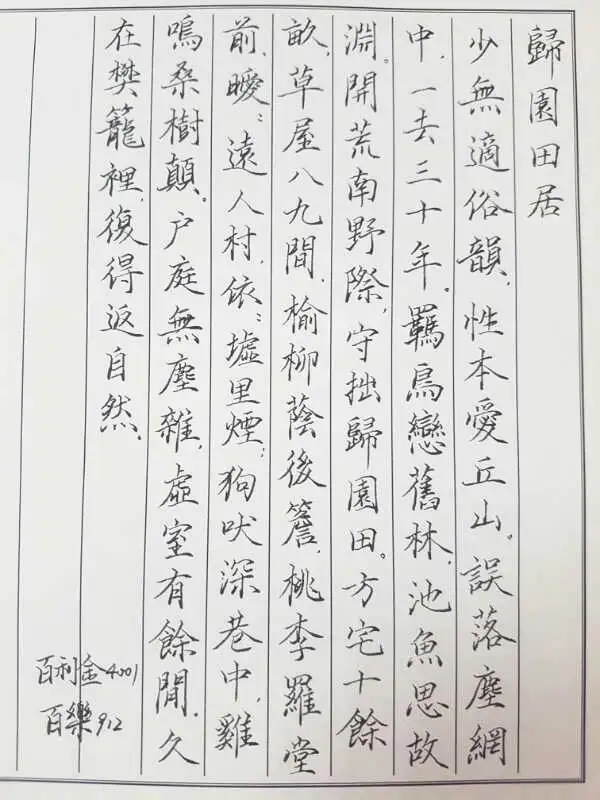 歸園田居
少無適俗韻，性本愛丘山。誤落塵網
中，一去三十年。羈鳥戀舊林，池魚思故
淵。開荒南野際，守拙歸園田。方宅十餘
畝，草屋八九間，榆柳蔭後簷，桃李羅堂
前，曖：遠人村，依：墟里煙；狗吠深巷中，雞
鳴桑樹顛。户庭無塵雜，虛室有餘閒，久
在樊籠裡，復得返自然.
百利金4001
百樂912